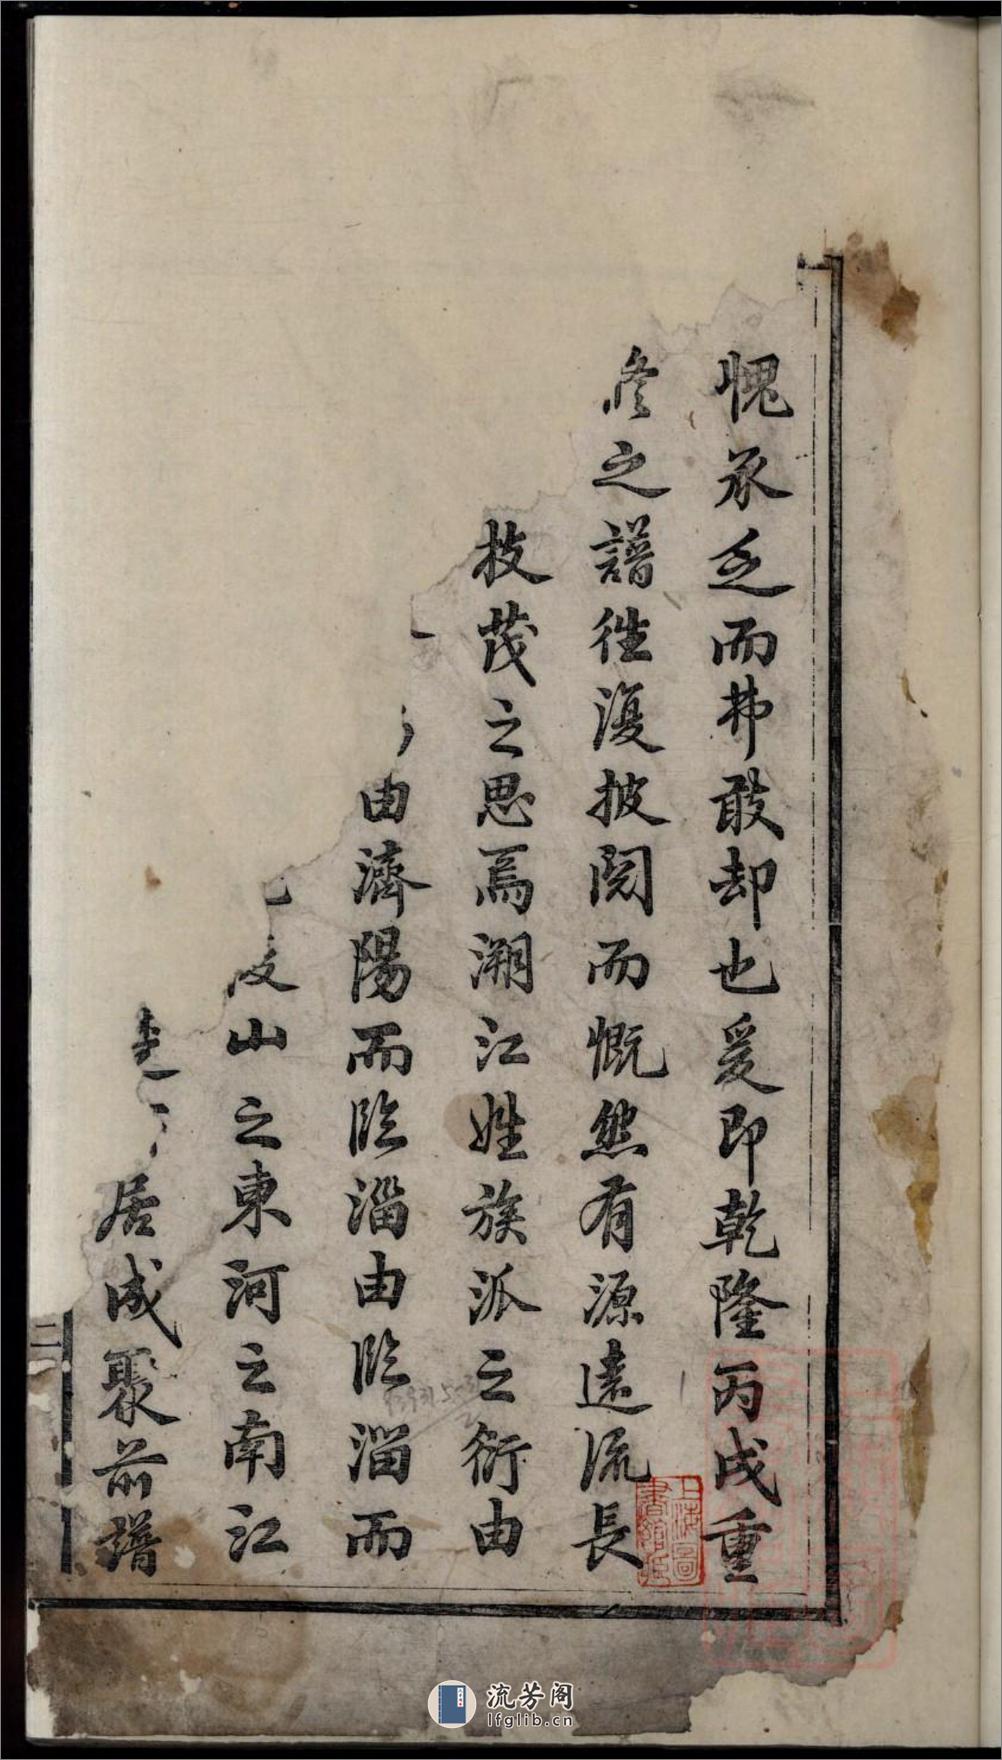 愧承乏而弗敢却也爰即乾隆丙戌重
修之譜徃復披閱而慨然有源遠流長
枝茂之思焉溯江姓族派之衍由
由濟陽而臨淄由臨淄而
山之東河之南江
居成聚前譜
二
上海圖書館藏
流芳阁
lfglib.cn